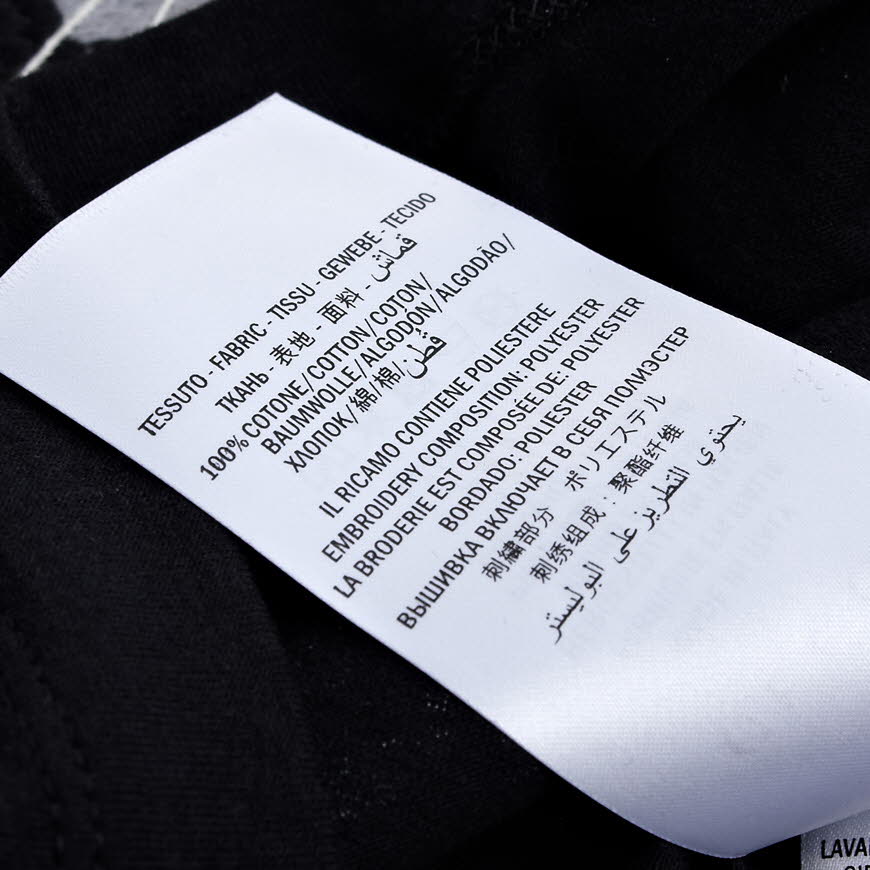 TESSUTO - FABRIC - TISSU - GEWEBE - TECIDO
ТКАНЬ - 表地 - 面料 - قماش
100% COTONE/COTTON/COTON/
BAUMWOLLE/ALGODON/ALGODÃO/
ХЛОПОК/綿/棉/قطن
IL RICAMO CONTIENE POLIESTERE
EMBROIDERY COMPOSITION: POLYESTER
LA BRODERIE EST COMPOSÉE DE: POLYESTER
BORDADO: POLIESTER
ВЫШИВКА ВКЛЮЧАЕТ В СЕБЯ ПОЛИЭСТЕР
刺繍部分 ポリエステル
刺绣组成：聚酯纤维
يحتوي التطريز على البوليستر